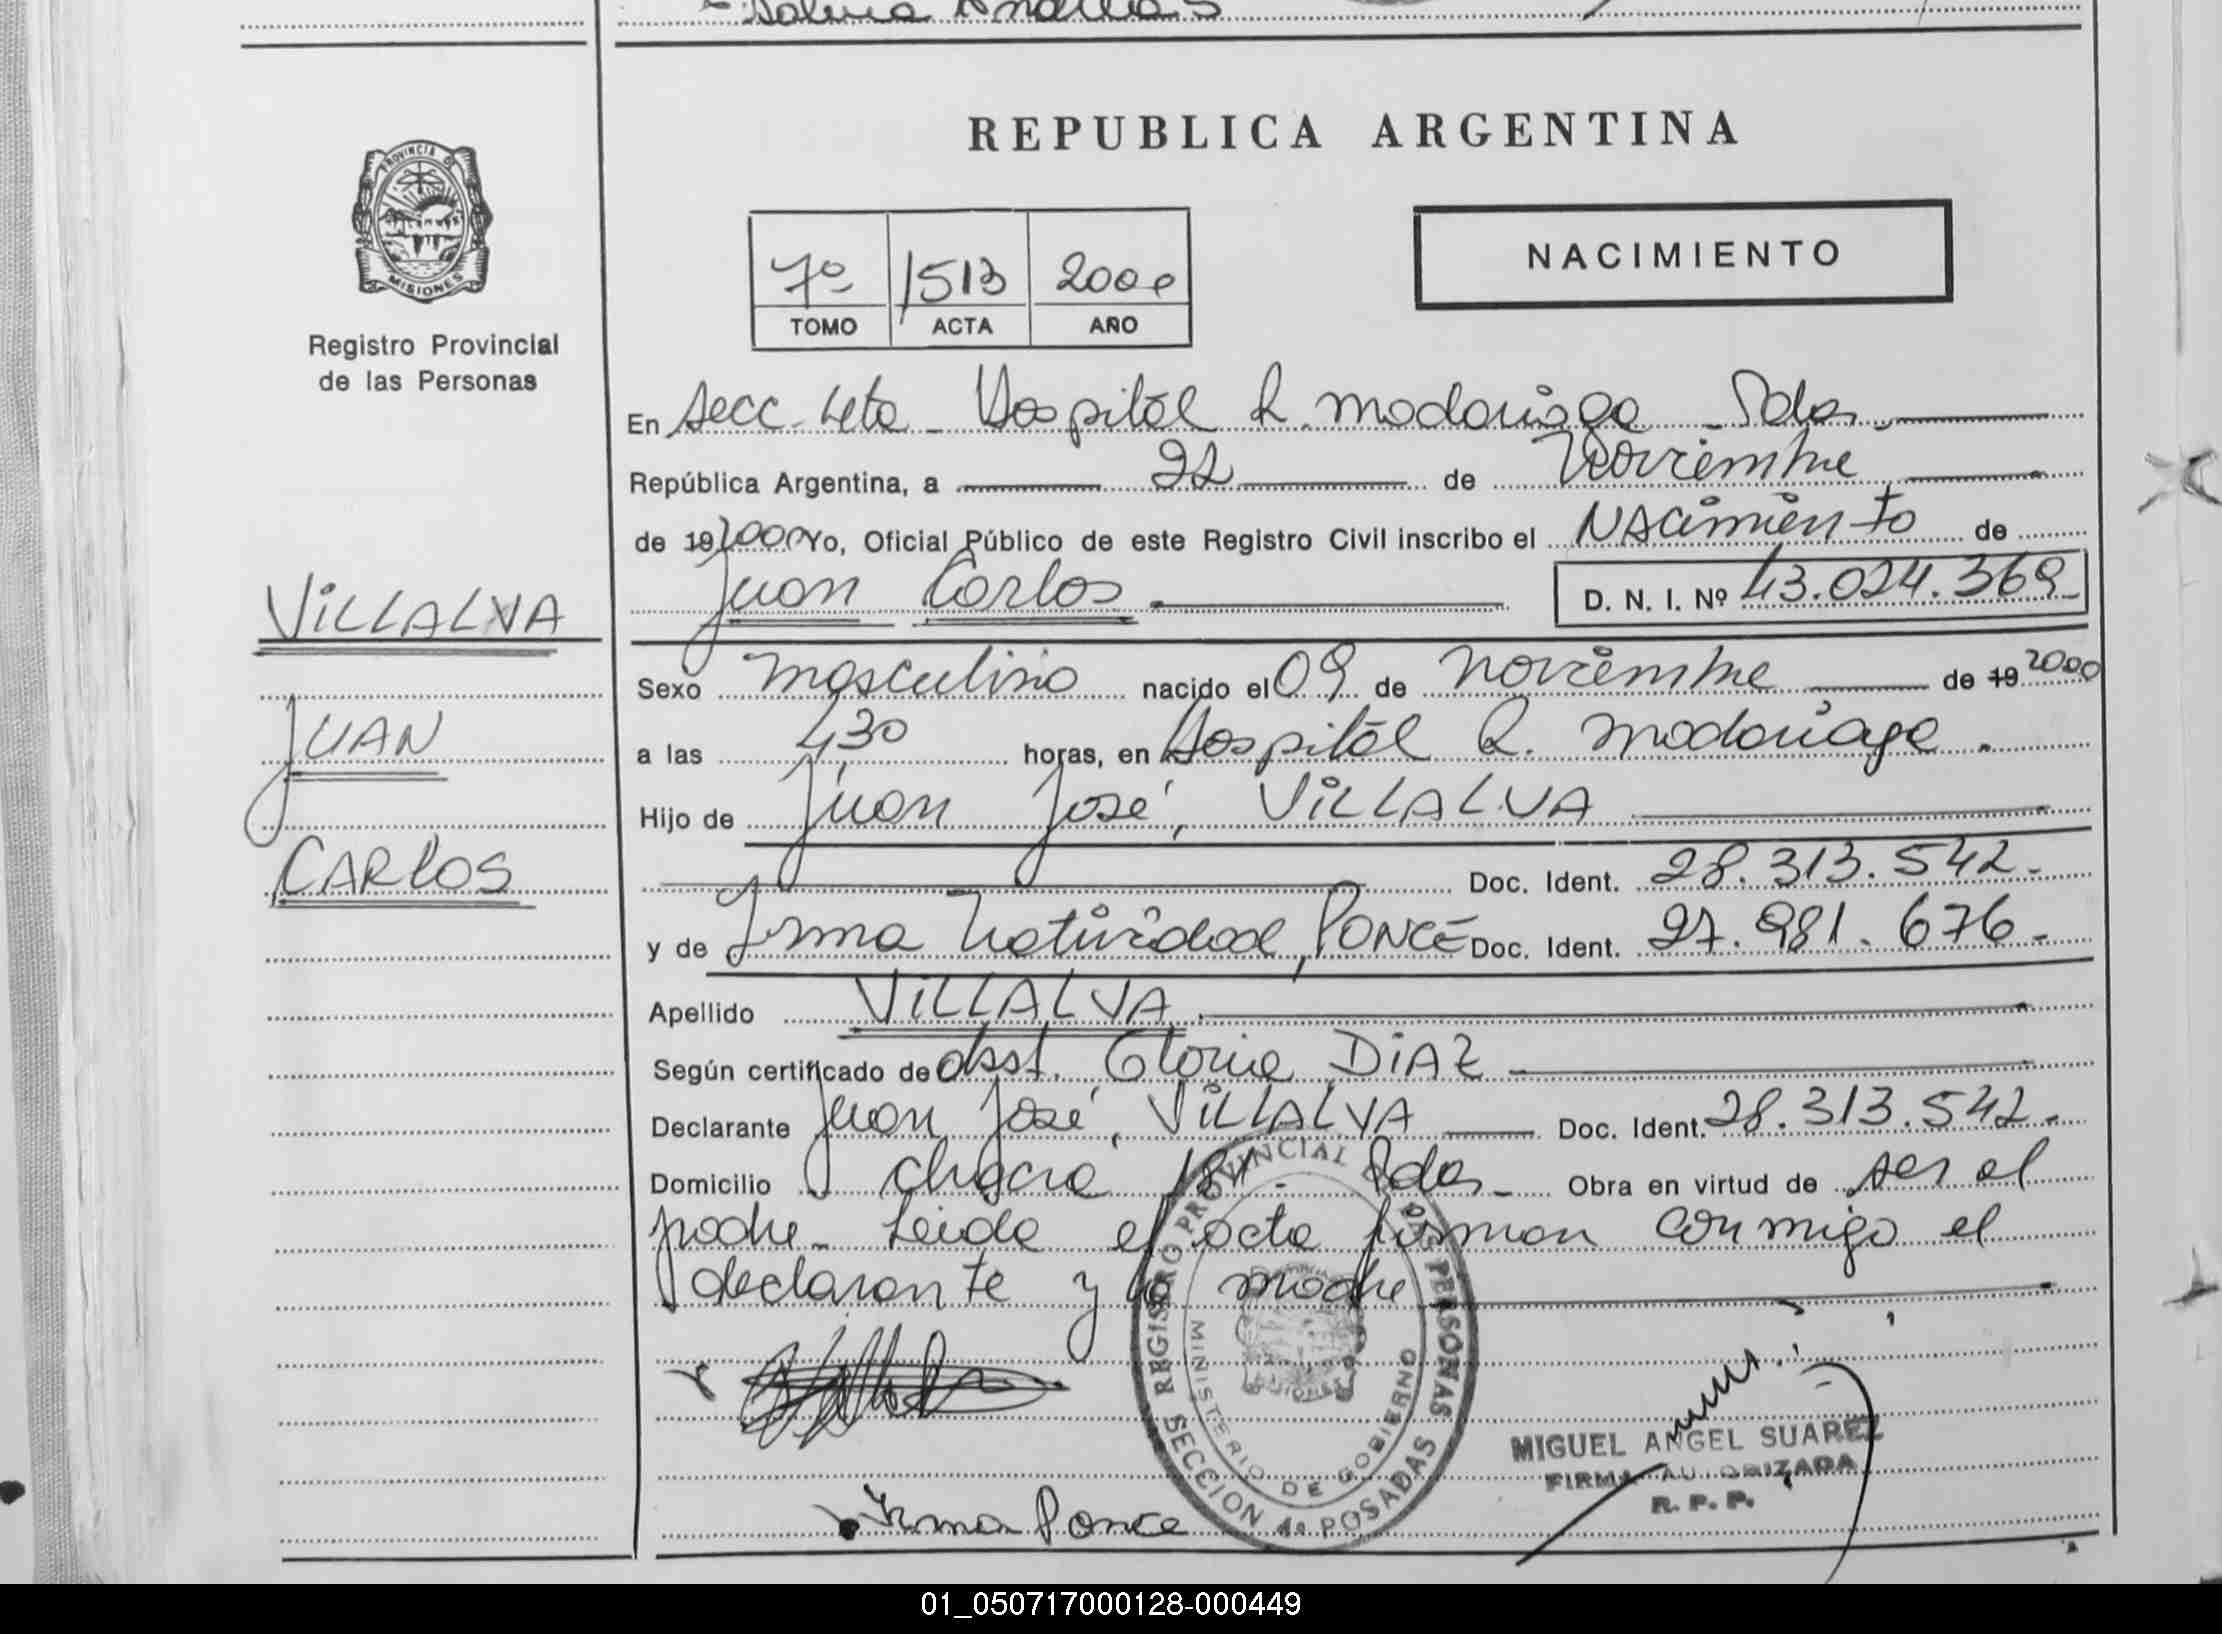 REPUBLICA ARGENTINA
PROVINCIA DE
MISIONES
Registro Provincial
de las Personas
NACIMIENTO
7º 1513 2000
TOMO ACTA AÑO
En Secc. 4ta - Hospital R. Madariaga - Pdas.
República Argentina, a 22 de Noviembre
de 19 2000 Yo, Oficial Público de este Registro Civil inscribo el Nacimiento de
Juan Carlos D. N. I. Nº 43.024.369
VILLALVA
JUAN
CARLOS
Sexo Masculino nacido el 09 de Noviembre de 19 2000
a las 4,30 horas, en Hospital R. Madariaga.
Hijo de Juan José, VILLALVA
Doc. Ident. 28.313.542.
y de Irma Natividad, PONCE Doc. Ident. 27.981.676.
Apellido VILLALVA
Según certificado de obst. Gloria DIAZ
Declarante Juan José, VILLALVA Doc. Ident. 28.313.542.
Domicilio Chacra 181 - Pdas. Obra en virtud de ser el
padre - Leida el acta firman conmigo el
declarante y la madre
REGISTRO PROVINCIAL DE LAS PERSONAS
MINISTERIO DE GOBIERNO
SECCION 4a POSADAS
MIGUEL ANGEL SUAREZ
FIRMA AUTORIZADA
R. P. P.
Irma Ponce
01_050717000128-000449